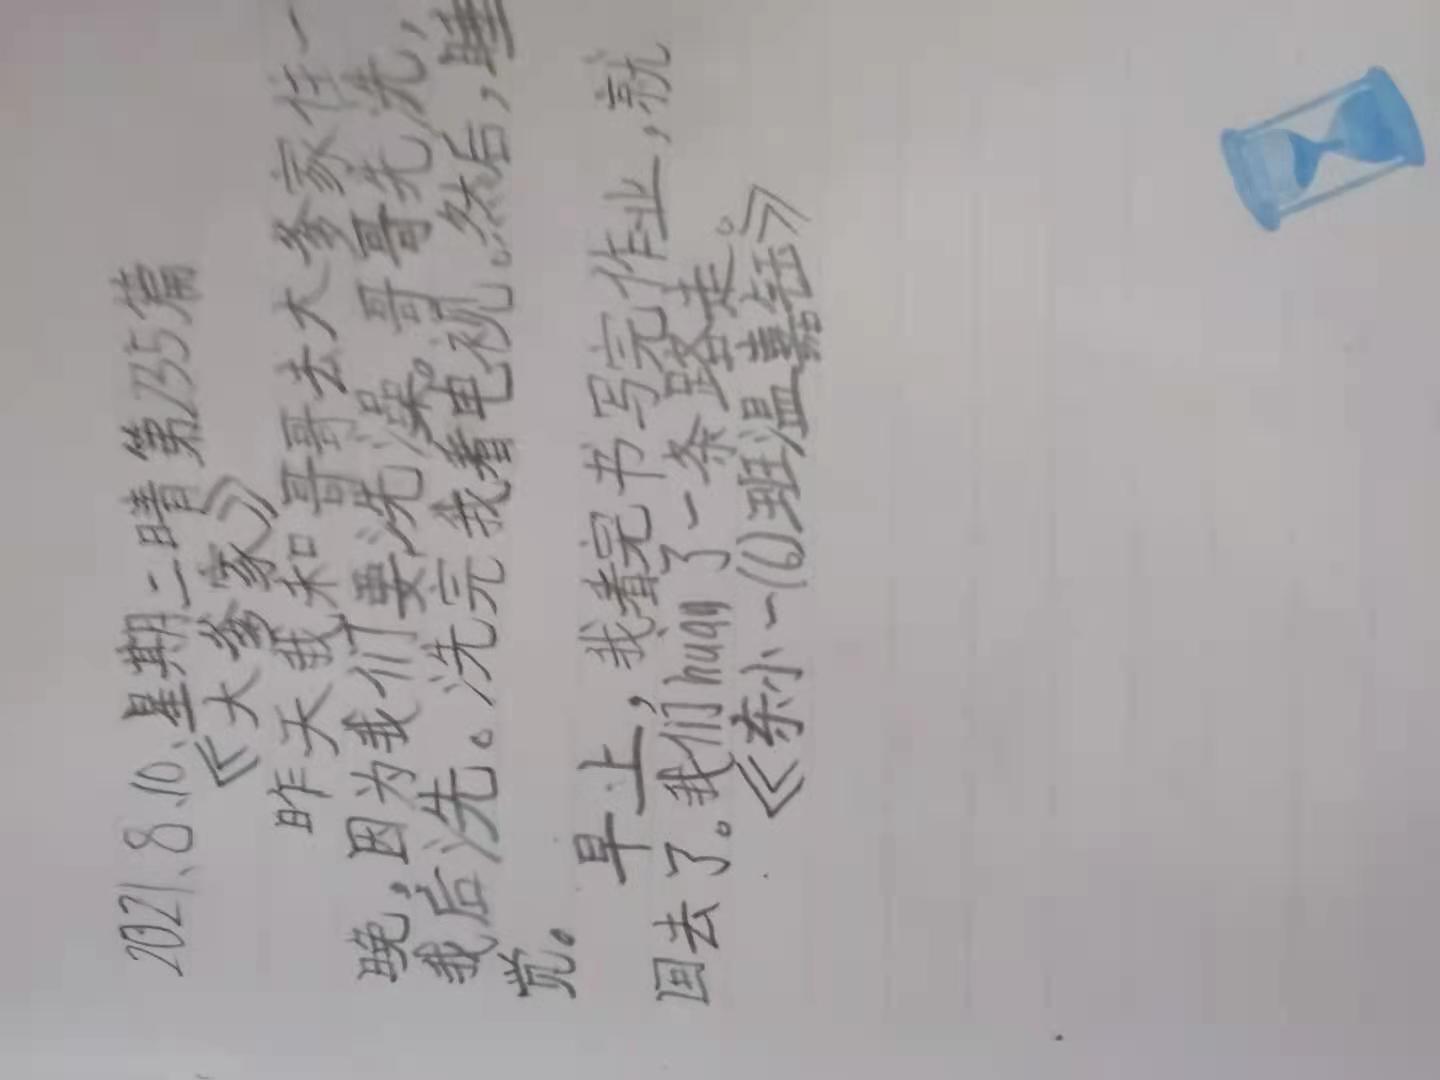 2021.8.10.星期二晴第235篇
《大爹家》
昨天我和哥哥去大爹家住一
晚,因为我们要洗澡。哥哥先洗,
我后洗。洗完我看电视。然后,睡
觉。
早上,我看完书写完作业,就
回去了。我们huan了一条路走。
《东小一(6)班温嘉钰》